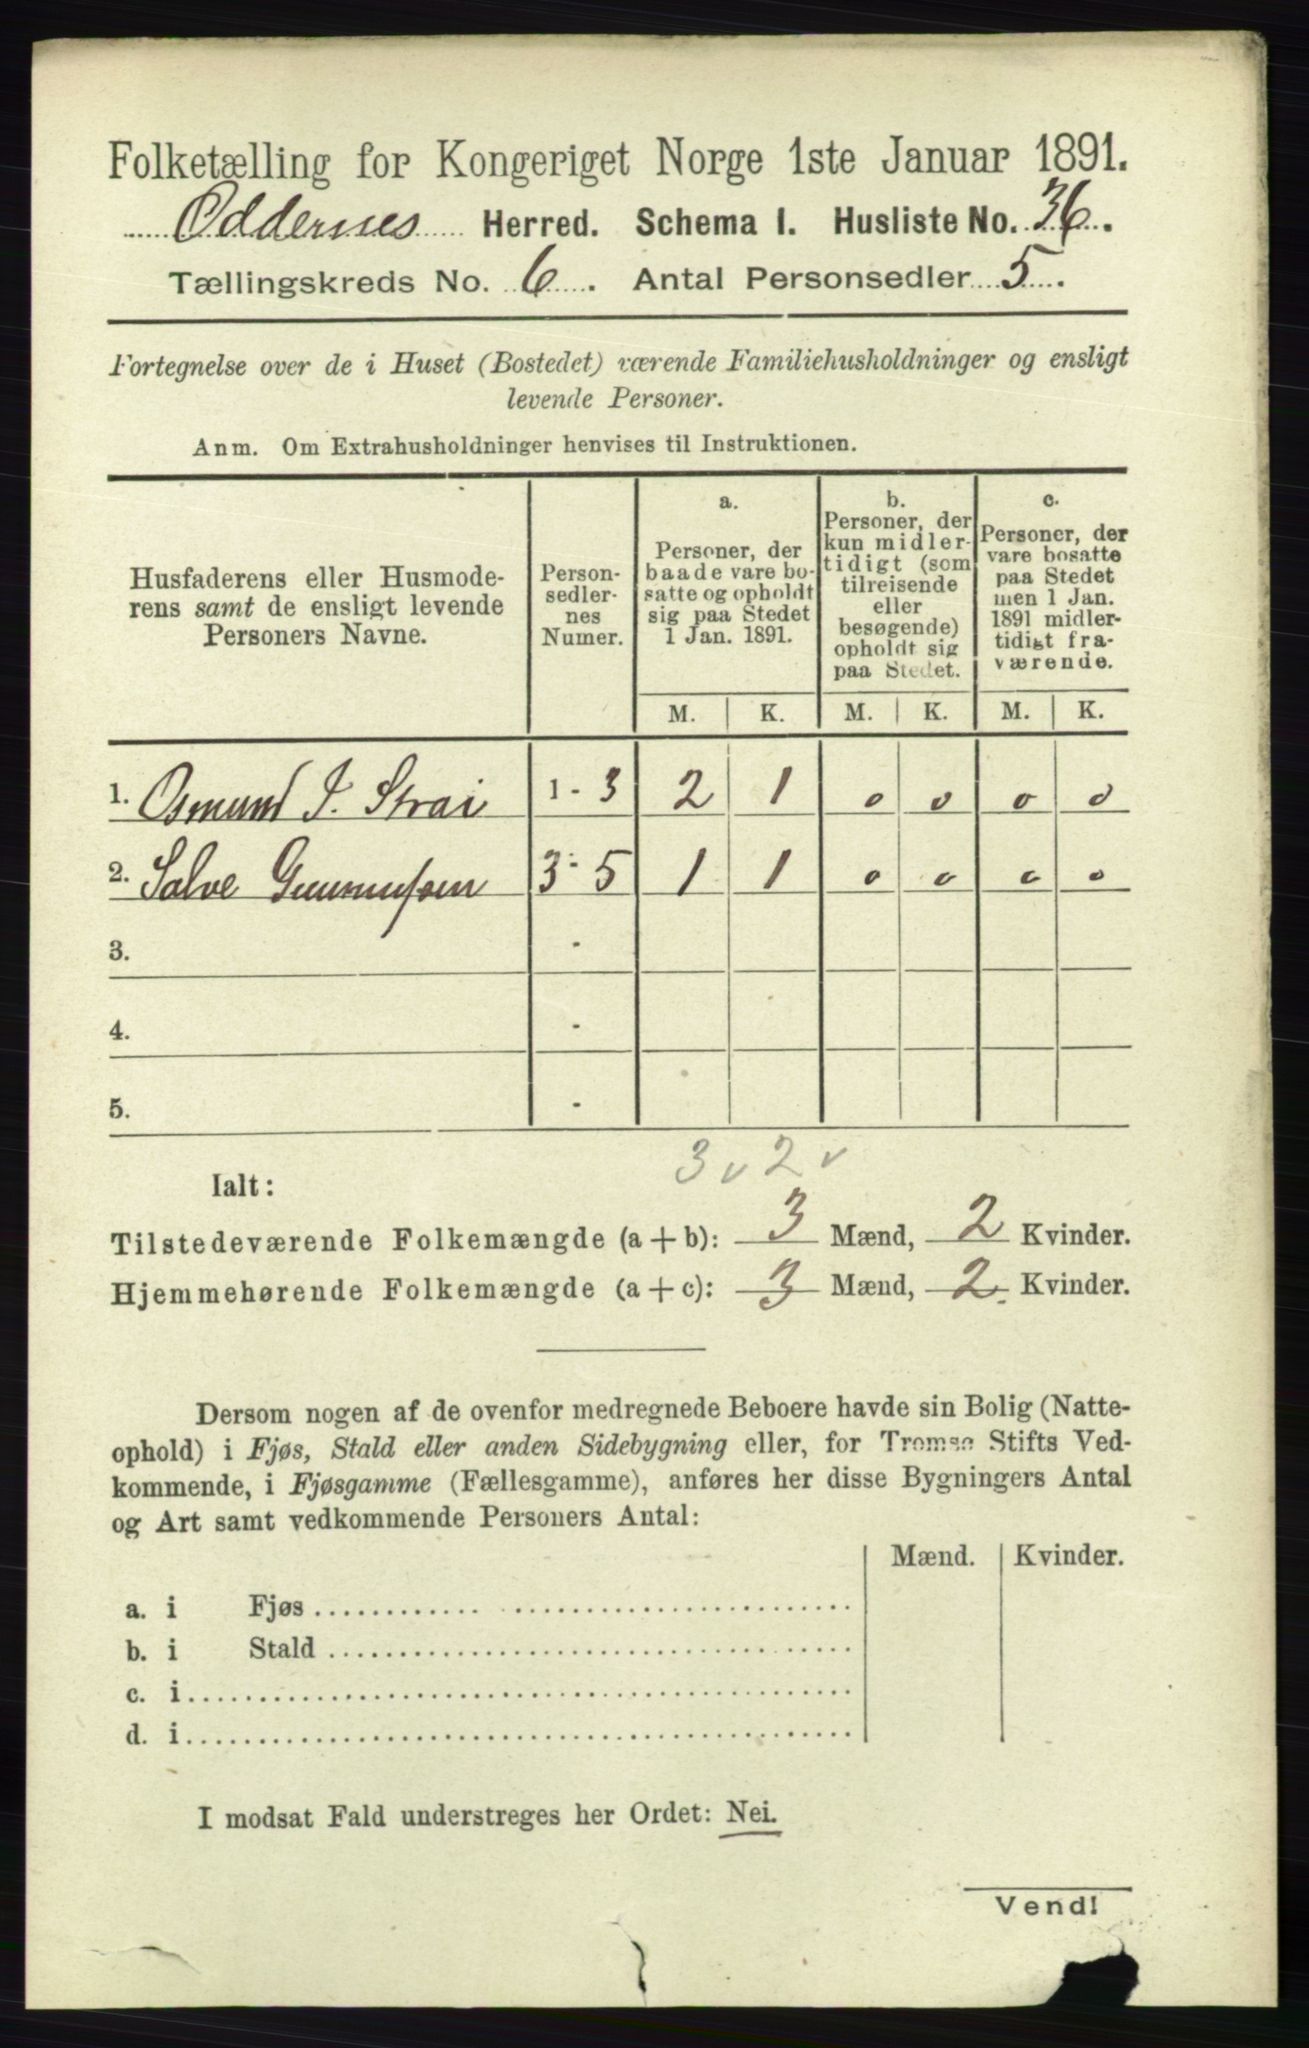 Folketælling for Kongeriget Norge 1ste Januar 1891.
Oddernes Herred. Schema I. Husliste No. 36.
Tællingskreds No. 6. Antal Personsedler 5.
Fortegnelse over de i Huset (Bostedet) værende Familiehusholdninger og ensligt
levende Personer.
Anm. Om Extrahusholdninger henvises til Instruktionen.
Husfaderens eller Husmode-
rens samt de ensligt levende
Personers Navne.
Person-
sedler-
nes
Numer.
a.
Personer, der
baade vare bo-
satte og opholdt
sig paa Stedet
1 Jan. 1891.
b.
Personer, der
kun midler-
tidigt (som
tilreisende
eller
besøgende)
opholdt sig
paa Stedet.
c.
Personer, der
vare bosatte
paa Stedet
men 1 Jan.
1891 midler-
tidigt fra-
værende.
M. K. M. K. M. K.
1. Osmund J. Strai 1 - 3 2 1 0 0 0 0
2. Salve Gunnufsen 3 - 5 1 1 0 0 0 0
3. -
4. -
5. -
3 v 2 v
Ialt:
Tilstedeværende Folkemængde (a + b): 3 Mænd, 2 Kvinder.
Hjemmehørende Folkemængde (a + c): 3 Mænd, 2 Kvinder.
Dersom nogen af de ovenfor medregnede Beboere havde sin Bolig (Natte-
ophold) i Fjøs, Stald eller anden Sidebygning eller, for Tromsø Stifts Ved-
kommende, i Fjøsgamme (Fællesgamme), anføres her disse Bygningers Antal
og Art samt vedkommende Personers Antal:
Mænd. Kvinder.
a. i Fjøs
b. i Stald
c. i
d. i
I modsat Fald understreges her Ordet: Nei.
Vend!